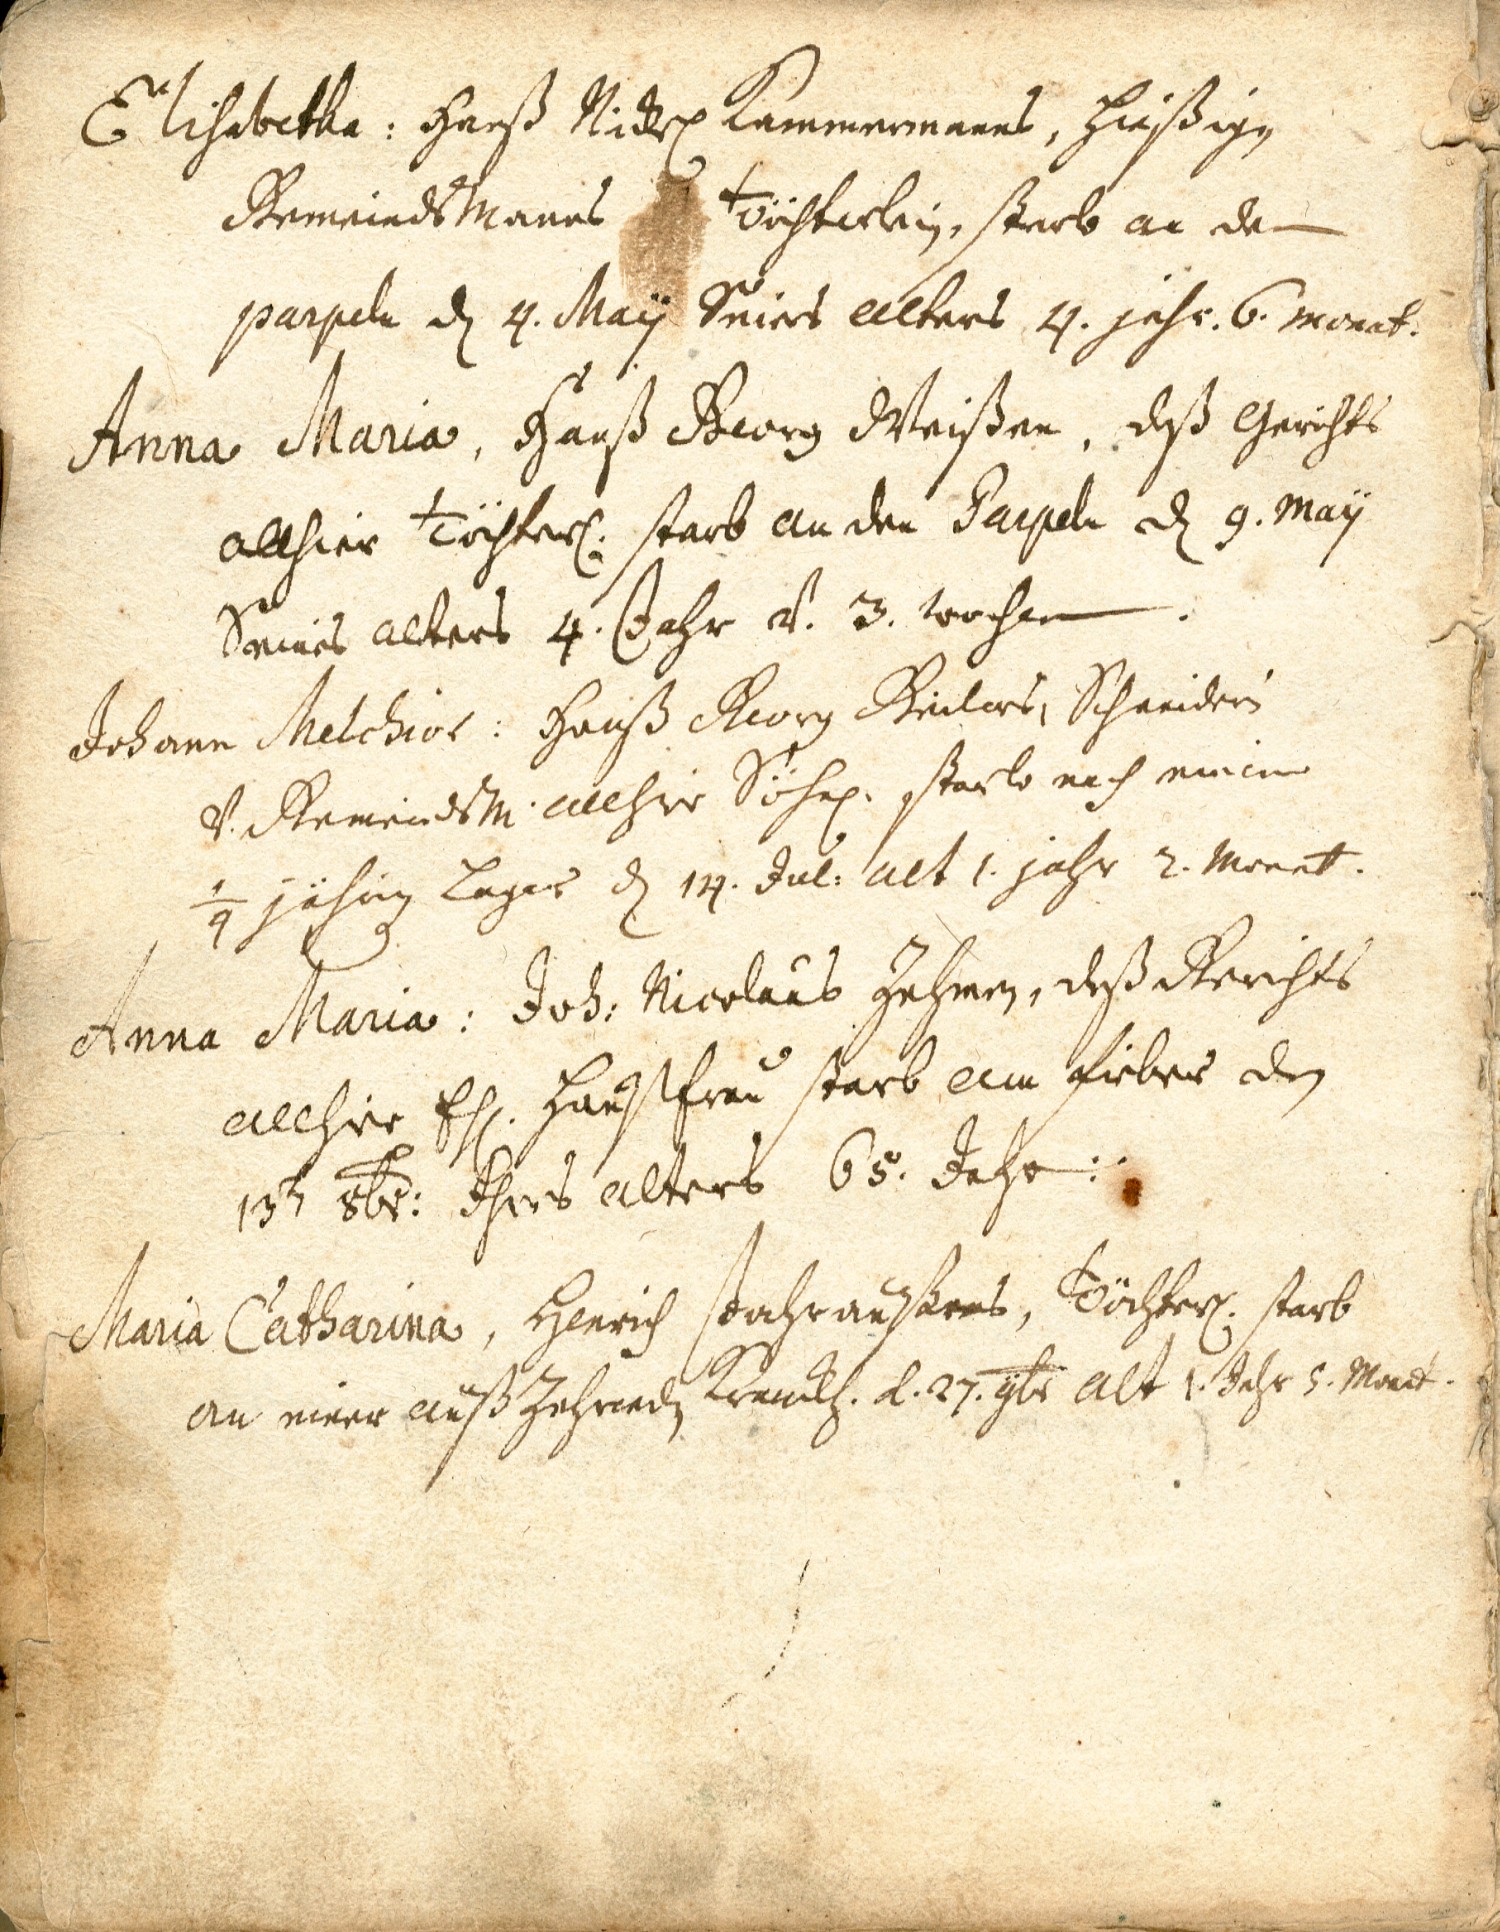 Elisabetha: Hanß Nickel Kammermanns, hießigen
Gemeinds Manns Töchterlein, starb an den
parpeln den 4. Maÿ Seines alters 4. jahr. 6. monat.
Anna Maria, Hanß Georg Weißen, deß Gerichts
allhier Töchterl. starb an den Parpeln den 9. Maÿ
Seines alters 4. Jahr v. 3. wochen.
Johann Melchior: Hanß Georg Schneiders
v. Gemeinds M. allhier Söhnl. starb nach einem
1/4 jährig Lager den 14. Jul: alt 1. jahr 2. Monat.
Anna Maria: Joh: Nicolaus Zehmen, deß Gerichts
allhier Ehl. Haußfrau starb am fieber den
13t 8br: Ihres alters 65. Jahr:
Maria Catharina, Henrich Töchterl. starb
an einer außzehrenden Kranckh. d. 27. 9br alt 1. Jahr 5. Monat.